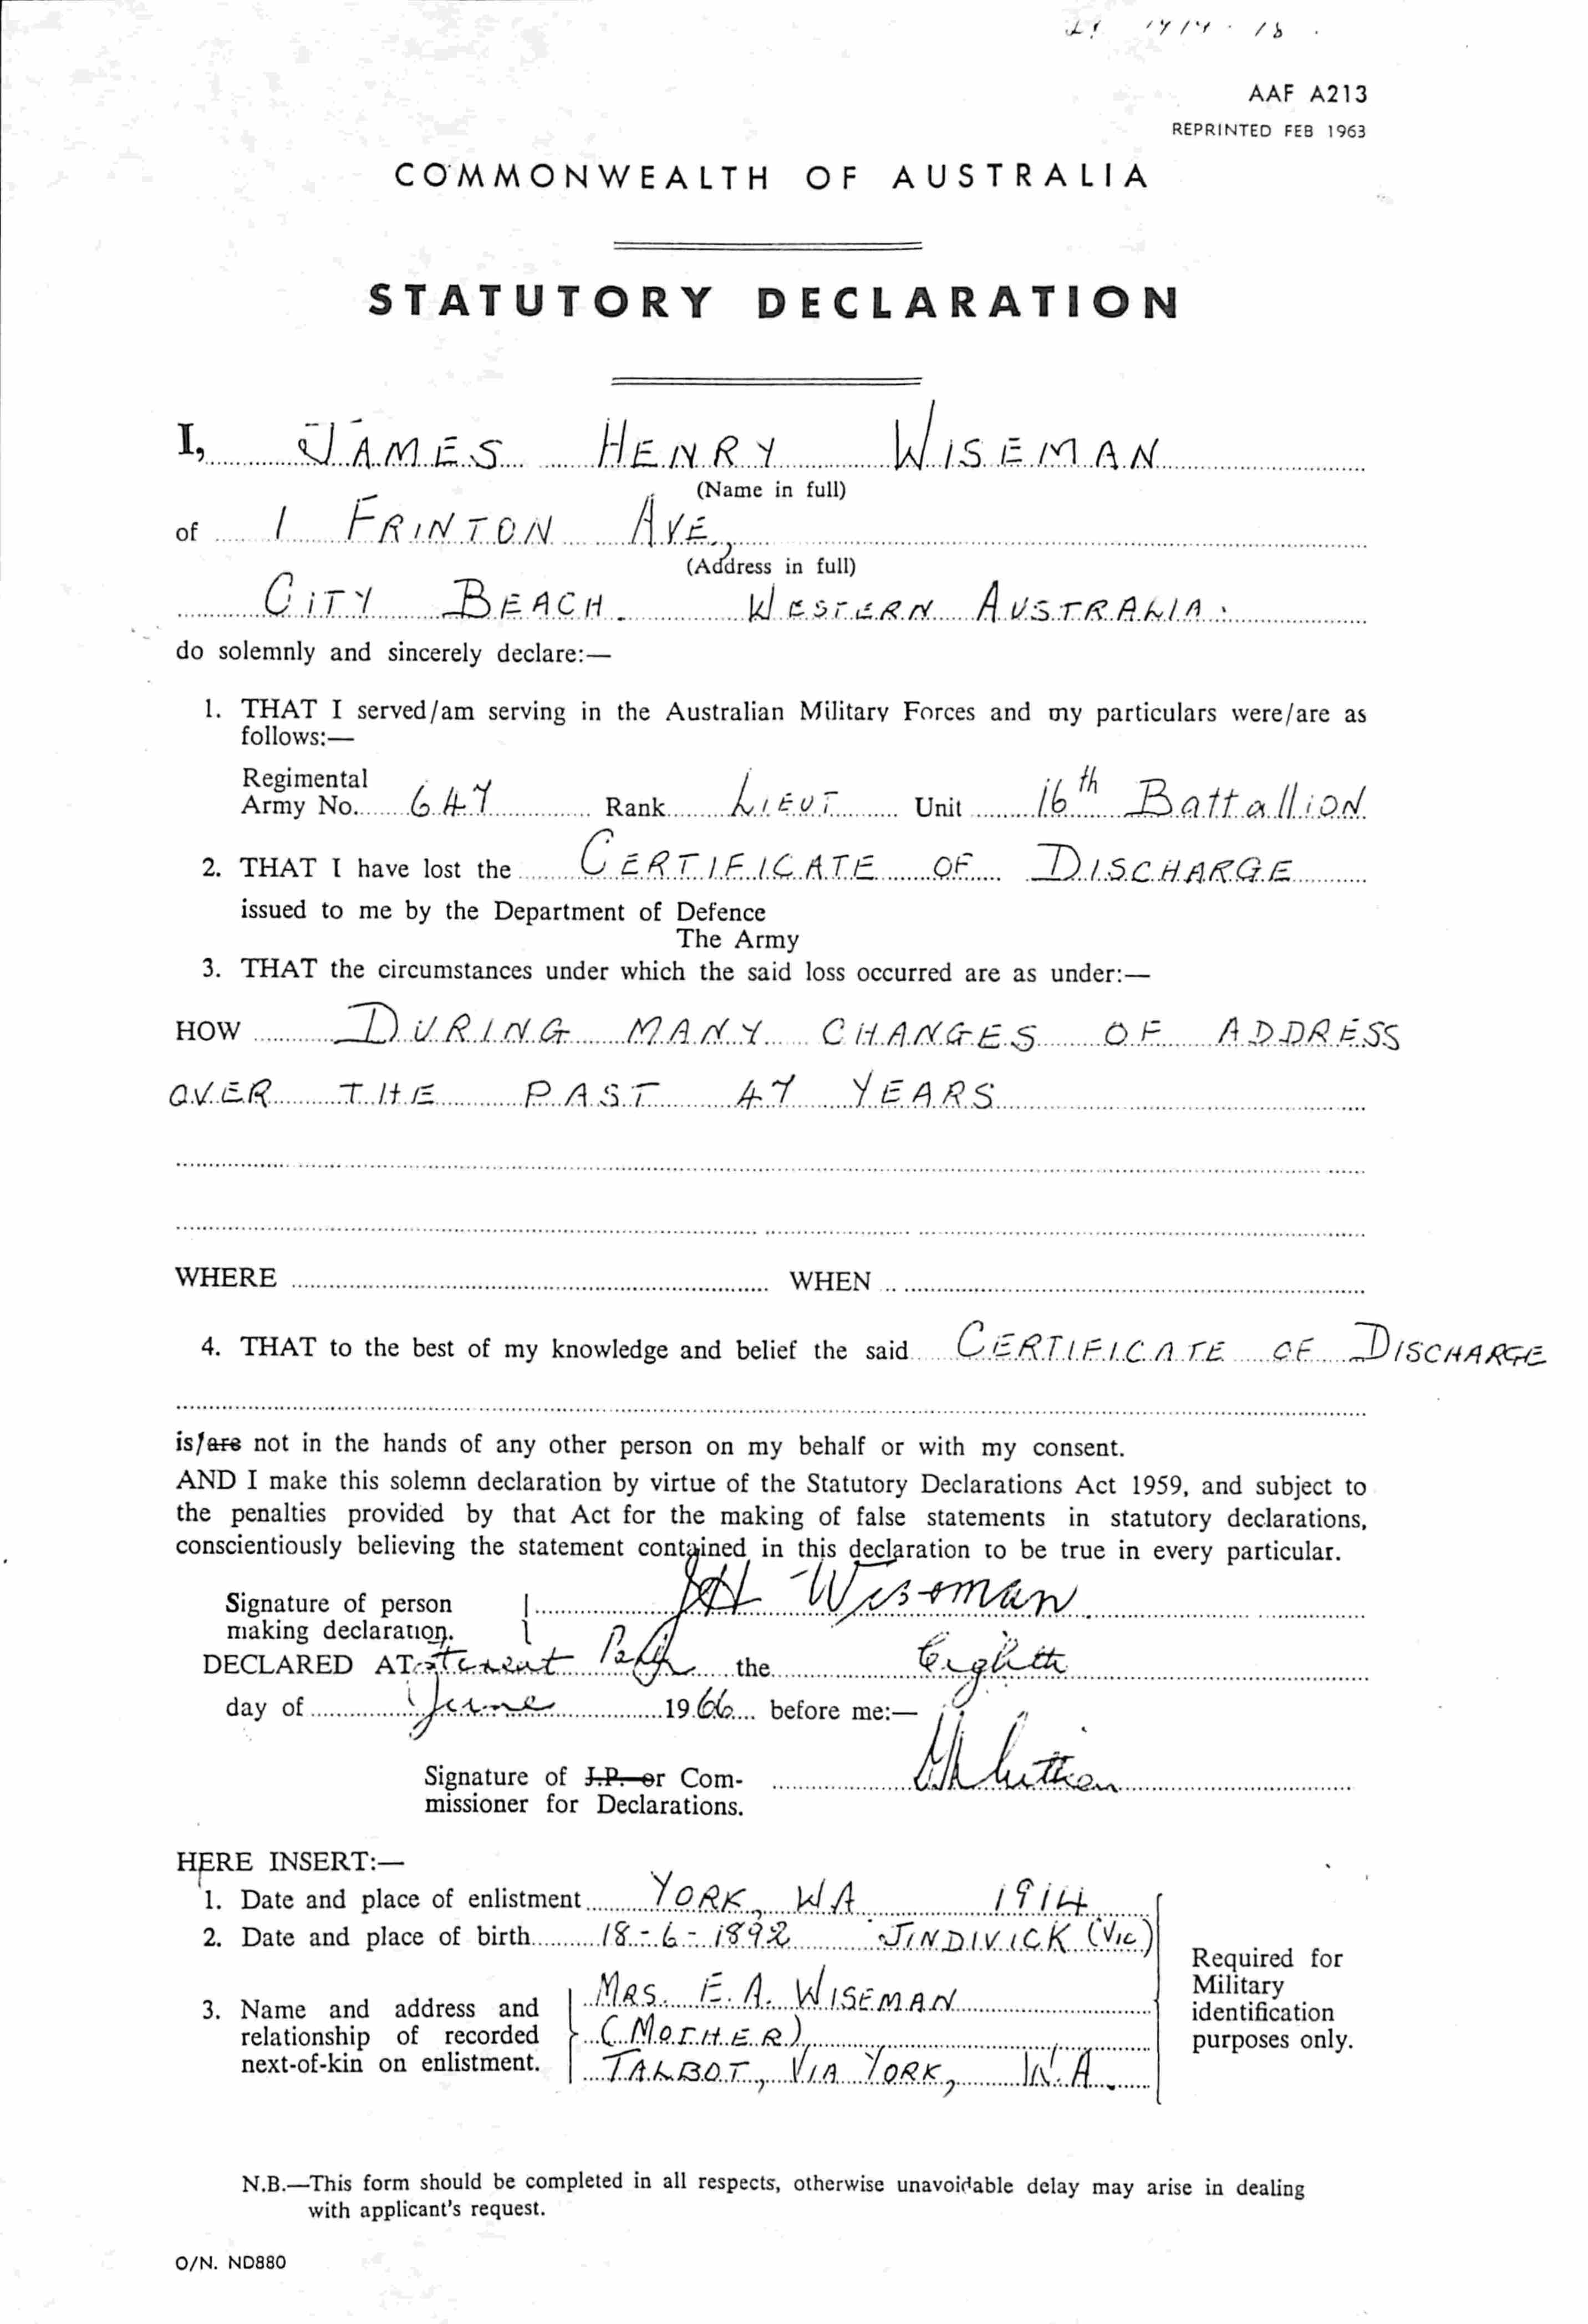 1914-18.
AAF A213
REPRINTED FEB 1963
COMMONWEALTH OF AUSTRALIA
STATUTORY DECLARATION
I, JAMES HENRY WISEMAN
(Name in full)
of 1 FRINTON AVE,
(Address in full)
CITY BEACH. WESTERN AUSTRALIA.
do solemnly and sincerely declare:—
1. THAT I served/am serving in the Australian Military Forces and my particulars were/are as
follows:—
Regimental
Army No. 647 Rank LIEUT Unit 16th Battallion
2. THAT I have lost the CERTIFICATE OF DISCHARGE
issued to me by the Department of Defence
The Army
3. THAT the circumstances under which the said loss occurred are as under:—
HOW DURING MANY CHANGES OF ADDRESS
OVER THE PAST 47 YEARS
WHERE WHEN
4. THAT to the best of my knowledge and belief the said CERTIFICATE OF DISCHARGE
is/are not in the hands of any other person on my behalf or with my consent.
AND I make this solemn declaration by virtue of the Statutory Declarations Act 1959, and subject to
the penalties provided by that Act for the making of false statements in statutory declarations,
conscientiously believing the statement contained in this declaration to be true in every particular.
Signature of person JH Wiseman
making declaration.
DECLARED AT Perth the Eighth
day of June 1966 before me:—
Signature of J.P. or Com-
missioner for Declarations.
HERE INSERT:—
1. Date and place of enlistment YORK, WA 1914
2. Date and place of birth 18-6-1892 JINDIVICK (VIC)
3. Name and address and
relationship of recorded
next-of-kin on enlistment.
MRS. E.A. WISEMAN
(MOTHER)
TALBOT, VIA YORK, W.A.
Required for
Military
identification
purposes only.
N.B.—This form should be completed in all respects, otherwise unavoidable delay may arise in dealing
with applicant's request.
O/N. ND880